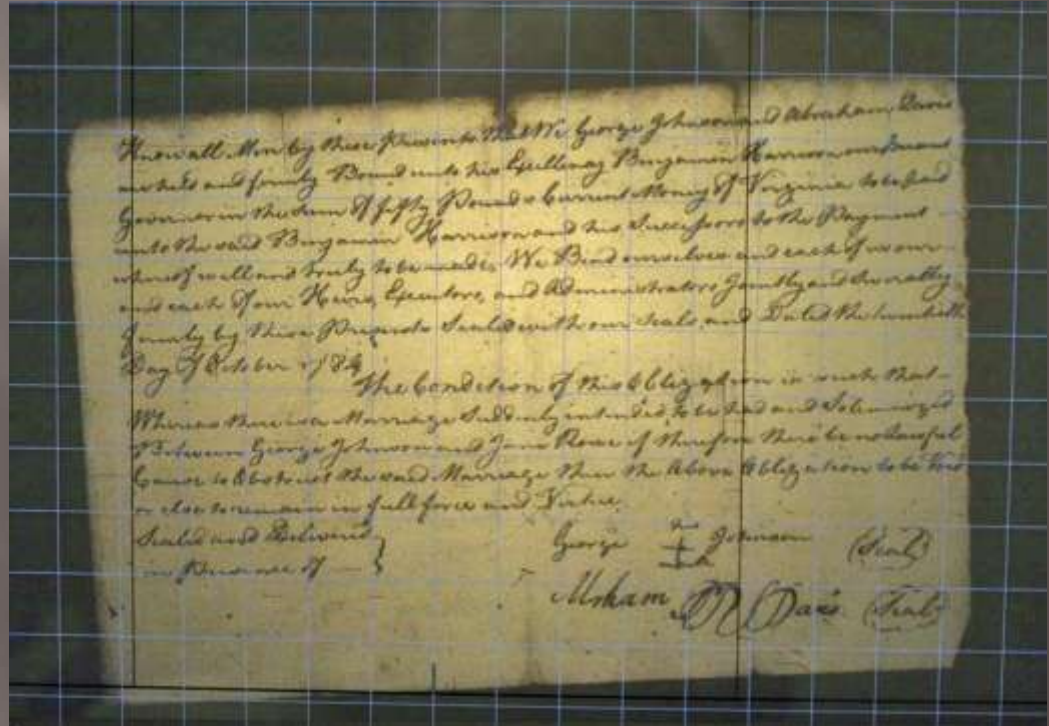 Know all Men by these Presents that We George Johnson and Abraham Davis
are held and firmly Bound unto his Excellency Benjamin Harrison
Governor in the Sum of fifty Pounds Current Money of Virginia to be paid
unto the said Benjamin Harrison and his Successors to the Payment
whereof well and truly to be made We Bind ourselves and each of us our
and each of our Heirs Executors and Administrators Jointly and Severally
firmly by these Presents Sealed with our Seals and Dated the
Day of October 1784
The Condition of this Obligation is such that
Whereas there is a Marriage Suddenly intended to be had and Solemnized
Between George Johnson and Jane Rowe if therefore there be no Lawful
Cause to Obstruct the said Marriage then the Above Obligation to be Void
or else to remain in full force and Virtue
Sealed and Delivered
in Presence of
George Johnson (Seal)
Abraham Davis (Seal)